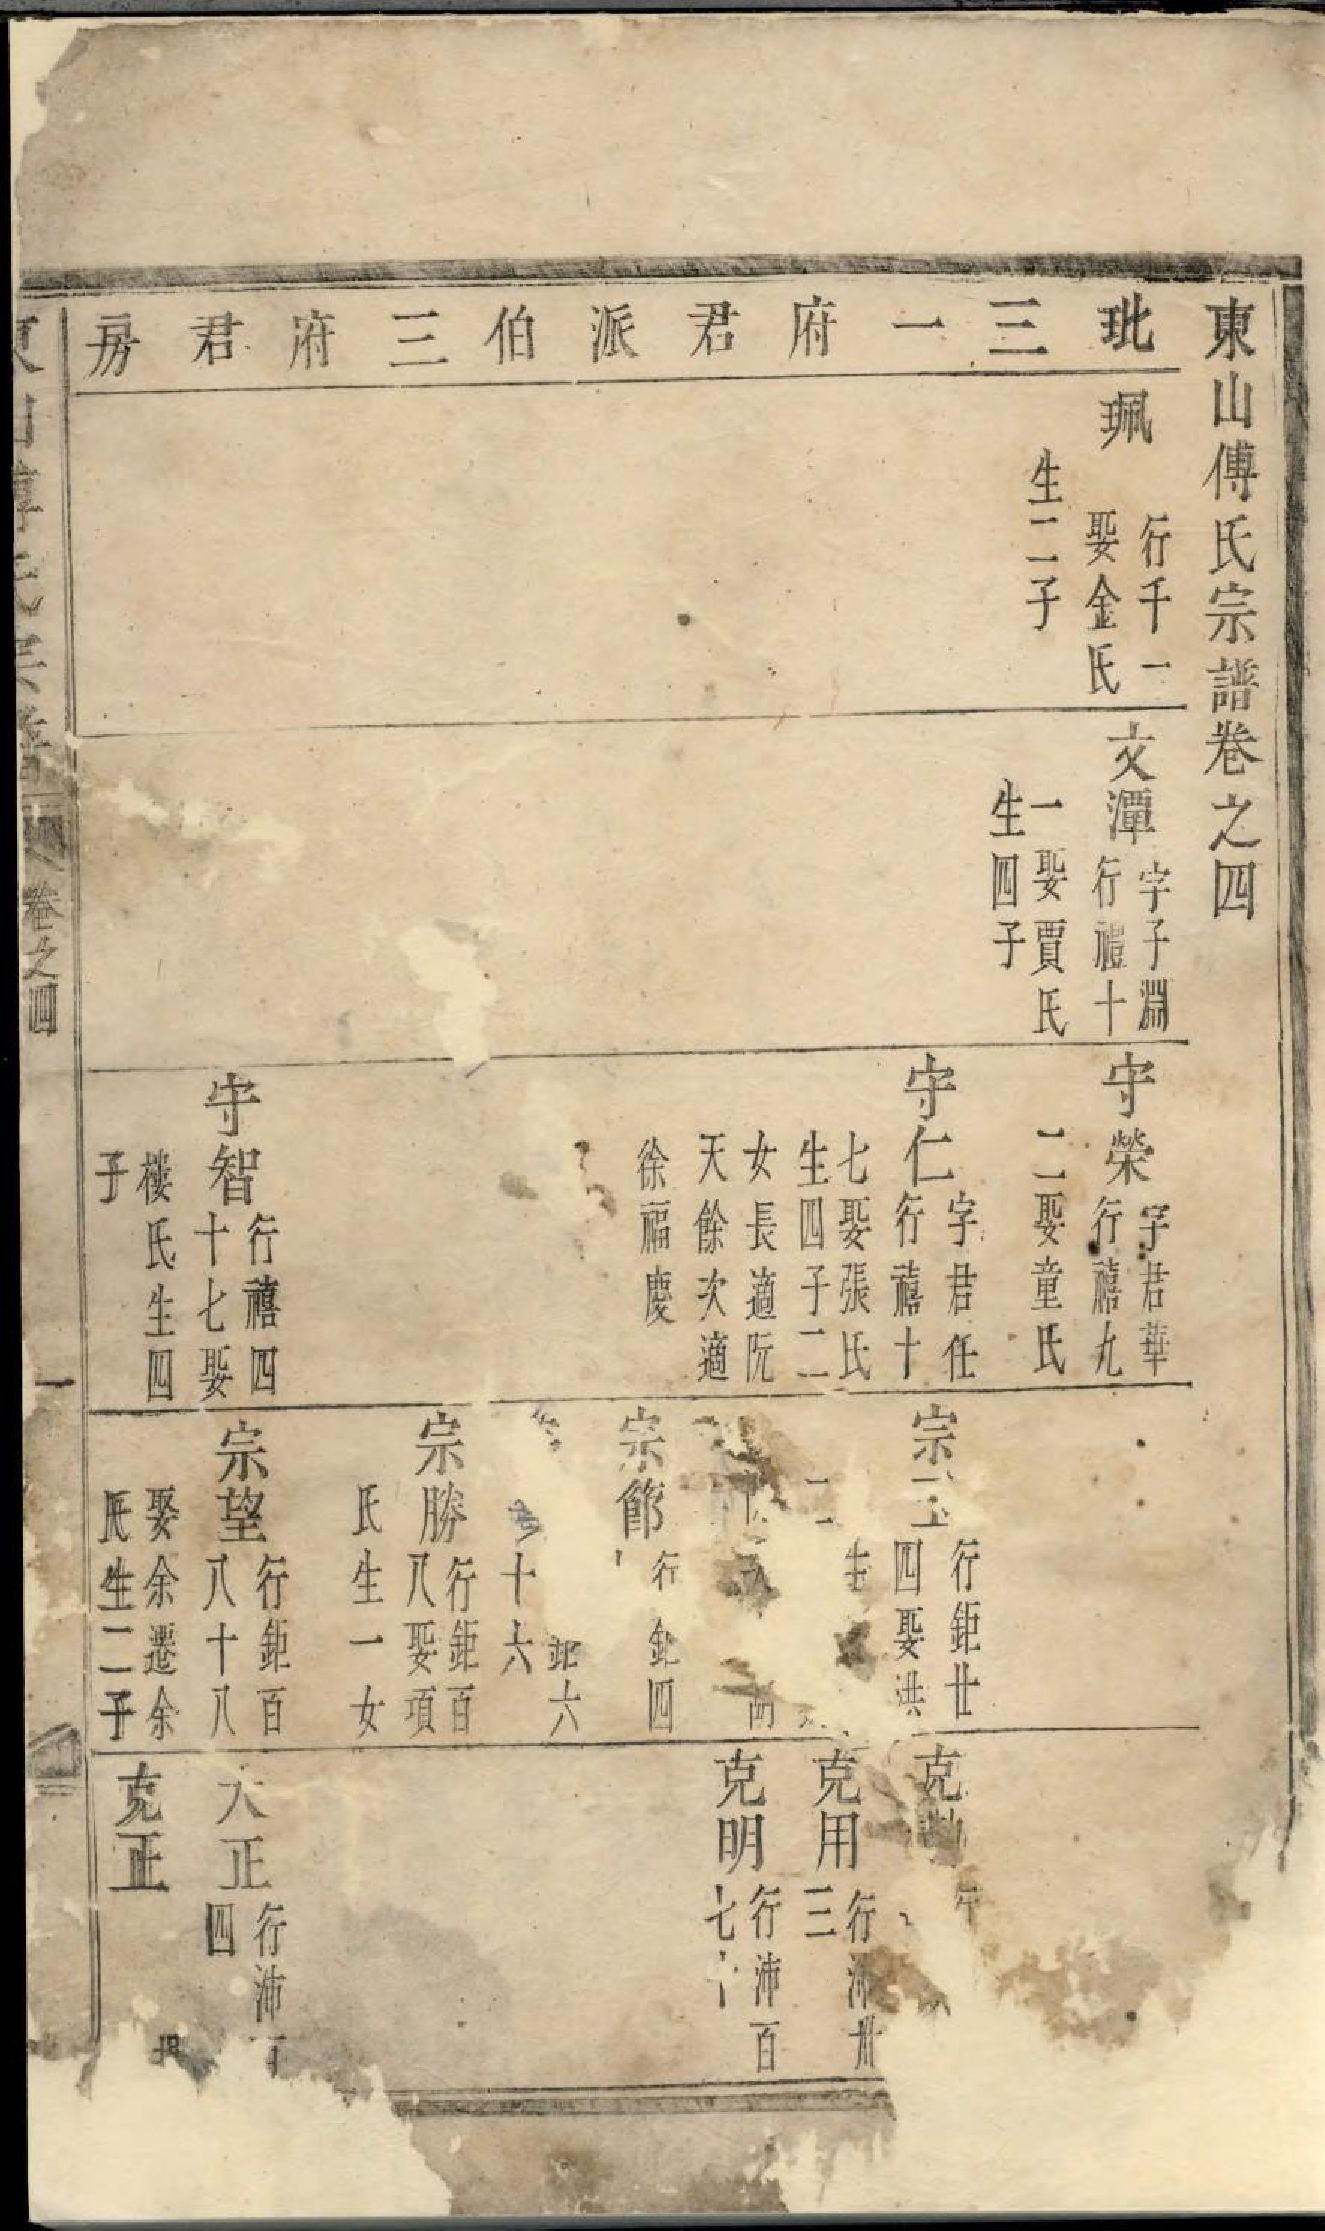 東山傅氏宗譜卷之四
玭三一府君派伯三府君房
珮
行千一
娶金氏
生二子
文潭
字子淵
行禮十
一娶賈氏
生四子
守榮
字君華
行禧九
二娶童氏
守仁
字君任
行禧十
七娶張氏
生四子二
女長適阮
天餘次適
徐福慶
守智
行禧四
十七娶
樓氏生四
子
宗
行鉅廿
四娶洪
生
二
宗節
行鉅四
鉅六
十六
宗勝
行鉅百
八娶項
氏生一女
宗望
行鉅百
八十八
娶余遷余
氏生二子
克
克用
行沛卅
三
克明
行沛百
七十
大正
行沛
四
克正
卷之四
一